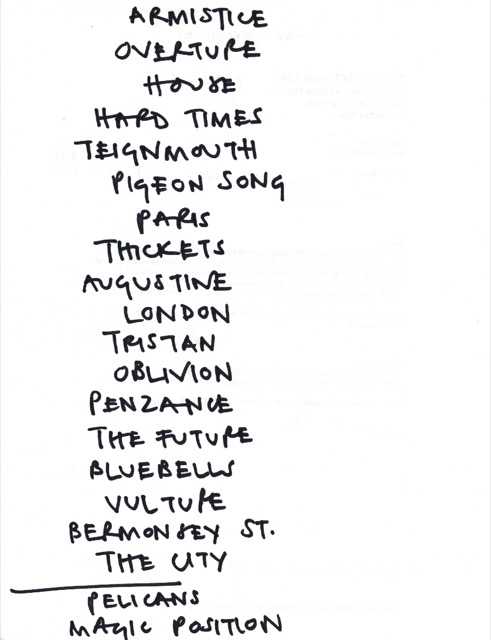 ARMISTICE
OVERTURE
HOUSE
HARD TIMES
TEIGNMOUTH
PIGEON SONG
PARIS
THICKETS
AUGUSTINE
LONDON
TRISTAN
OBLIVION
PENZANCE
THE FUTURE
BLUEBELLS
VULTURE
BERMONSEY ST.
THE CITY
PELICANS
MAGIC POSITION